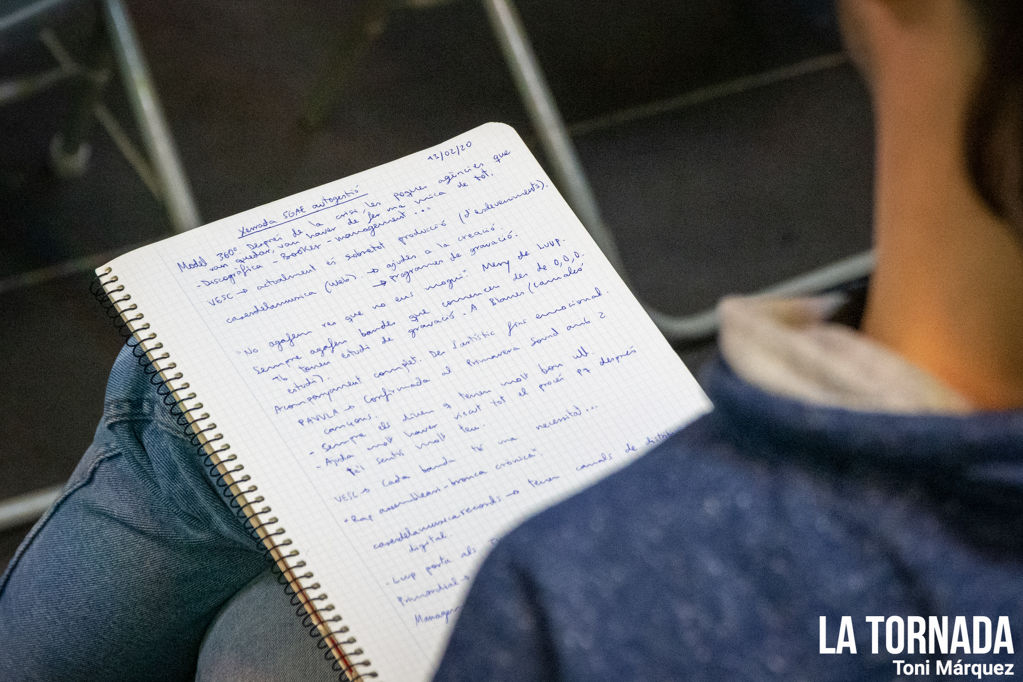 13/02/20
Xerrada SGAE autogestió
Model 360º. Després de la crisi, les poques agències que
van quedar, van haver de fer una mica de tot.
- Discogràfica - Booker - management ...
VESC → actualment és sobretot producció (d'esdeveniments).
casesdelamusica (Web) → ajudes a la creació.
→ programes de gravació.
"No agafem res que no ens molqui" Meny de Luup.
Sempre agafem bandes que comencen des de 0,0,0.
Tb tenen estudi de gravació. A Blanes (camaleó
estudi).
Acompanyament complet. Des l'artístic fins emocional.
PAVVLA → Confirmada al Primavera Sound amb 2
cançons.
- Sempre els diven q tenen molt bon ull
- Ajuda molt haver viscut tot el procés pq després
t'ho sents molt teu.
VESC → Cada banda té una necessitat...
- Rap assembleari - bronca crònica"
casesdelamusicarecords → tenen canals de
digital.
- Luup porta als
Primordial →
Managem
LA TORNADA
Toni Márquez